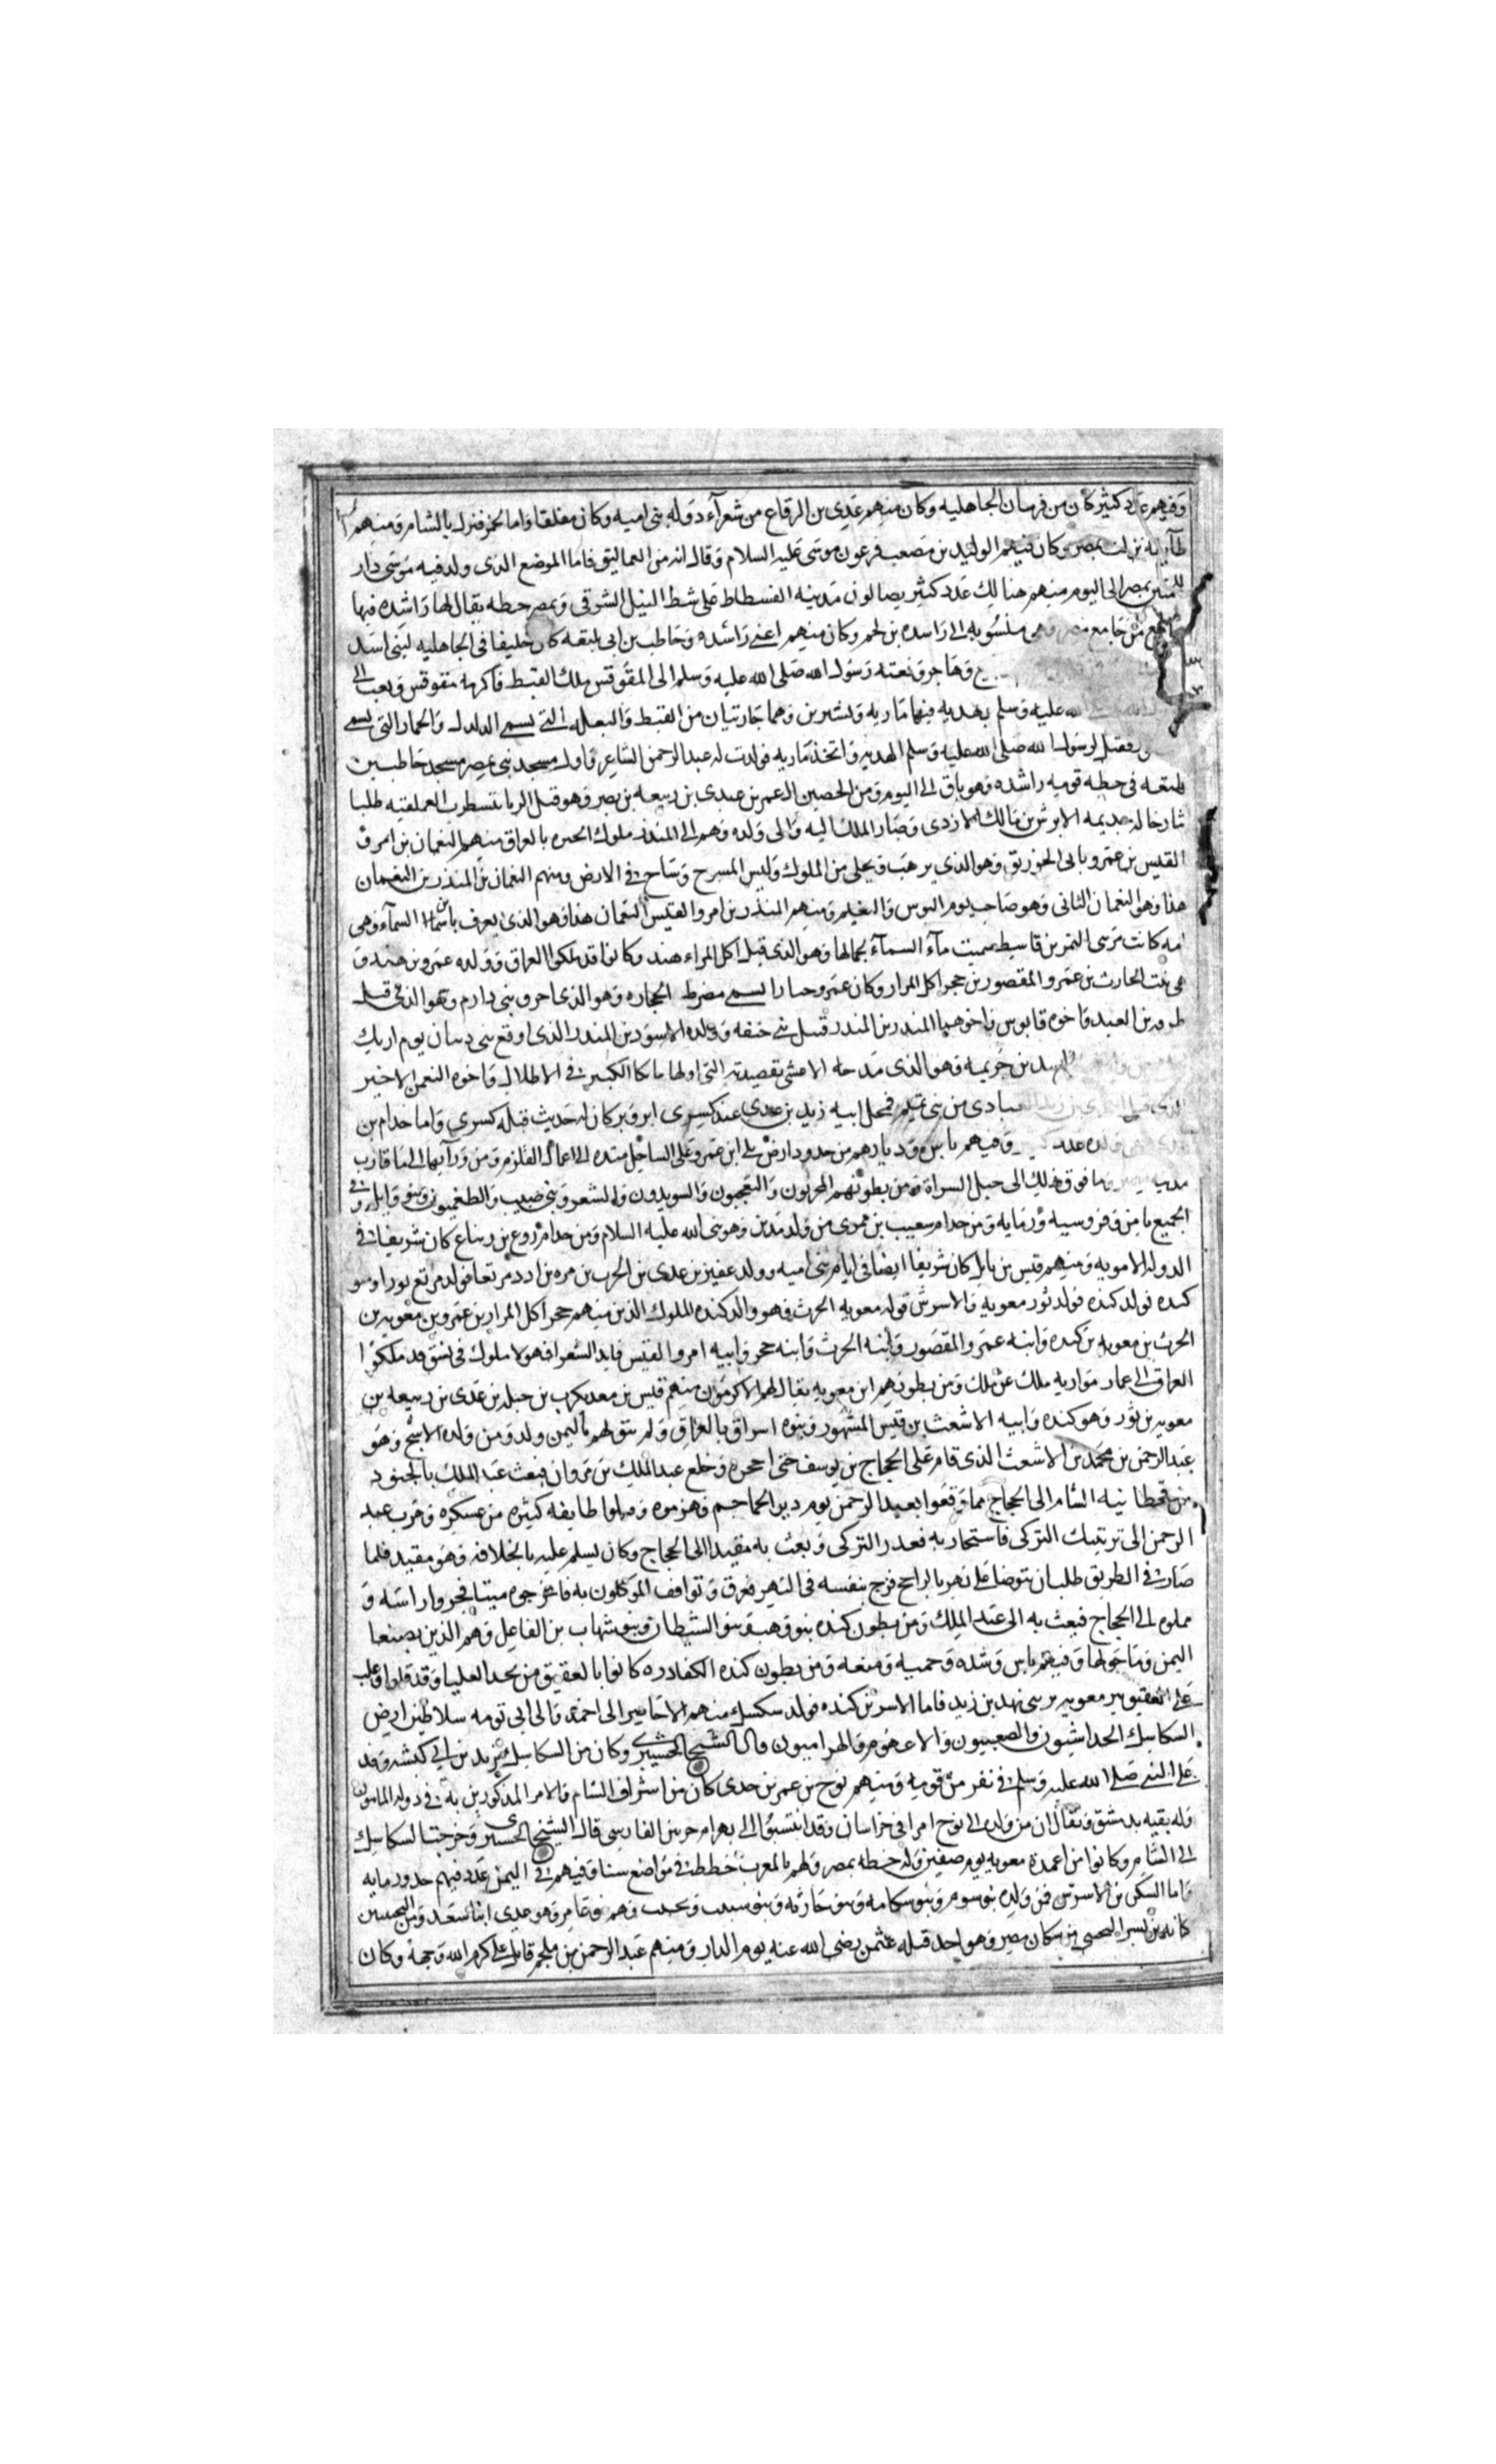 وفيهم عدد كثير كان من فرسان الجاهليه وكان منهم عدى بن الرقاع من شعرآء دوله بنى اميه وكان مفلقا واما لخم فنزلت بالشام ومنهم
طآيفه نزلت بمصر وكان فيهم الوليد بن مصعب فرعون موسى عليه السلام وقال انه من العماليق فاما الموضع الذى ولد فيه موسى دار
بمصر الى اليوم منهم هنالك عدد كثير يصالون مدينه الفسطاط على شط النيل الشرقى وبمصر خطه يقال لها راشده فيها
جامع من جامع مصر وهى منسوبه الى راشده بن لخم وكان منهم اعنى راشده وحاطب بن ابى بلتعه كان حليفا فى الجاهليه لبنى اسد
وهاجر وبعثه رسول الله صلى الله عليه وسلم الى المقوقس ملك القبط فاكرمه مقوقس وبعث الى
الله عليه وسلم بهديه فيها ماريه وشيرين وهما جاريتان من القبط والبعله التى تسمى الدلدل والحمار التى يسمى
فقبل رسول الله صلى الله عليه وسلم الهديه واتخذ ماريه فولدت له عبد الرحمن الشاعر واول مسجد بنى بمصر مسجد حاطب بن
بلتعه فى خطه قوميه راشده وهو باق الى اليوم ومن الحصين ال عمر بن عدى بن ربيعه بن نصر وهو قتل الزبا بنسطرب العمليقيه طلبا
ثار خاله جديمه الابرش بن مالك الازدى وصار الملك اليه والى ولده وهم الى المنذر ملوك الحيره بالعراق منهم النعمان بن امرؤ
القيس بن عمرو بانى الخورنق وهو الذى ترهب وتخلى من الملوك ولبس المسرح وساح فى الارض ومنهم النعمان بن المنذر بن النعمان
هذا وهو النعمان الثانى وهو صاحب يوم البوس والنعيم ومنهم المنذر بن امرو القيس النعمان هذا وهو الذى يعرف بابن ماء السمآء وهى
امه كانت من بنى النمر بن قاسط سميت مآء السمآء لجمالها وهو الذى قبل اكل المراء هند وكانوا قد ملكوا العراق وولده عمرو بن هند و
هى بنت الحارث بن عمرو المقصور بن حجر اكل المرار وكان عمرو جبارا يسمى مضرط الحجاره وهو الذى احرق بنى دارم وهو الذى قتل
طرفه بن العبد واخوه قابوس واخوهما المنذر بن المنذر قتل فى حنفه وولده الاسود بن المنذر الذى اوقع ببنى دبيان يوم اريك
اسد بن خزيمه وهو الذى مدحه الاعشى بقصيدته التى اولها ما بكا الكبير فى الاطلال واخوه النعمن الاخير
العبادى من بنى تميم فمحل ابيه زيد بن عدى عند كسرى ابرويز كان له حديث قتله كسرى واما جدام بن
عدى وولده عدد كثير وفيهم باس وديارهم من حدود ارض بلى ابن عمرو على الساحل متده الى اعمال القلزم ومن ورآيها الى ما قارب
وما فوق ذلك الى جبل السراة ومن بطونهم المحربون والنعجيون والسويديون والشعر وبنى ضبيب والطغميون وبنو وايل وفى
الجميع باس وفروسيه ورمايه ومن جدام شعيب بن مموى من ولد مدين وهو نبى الله عليه السلام ومن جدام روح بن زنباع كان شريفا فى
الدوله الامويه ومنهم قيس بن بابل كان شريفا ايضا فى ايام بنى اميه وولد عفير بن عدى بن الحرث بن مره بن ادد مرتعا فولد مرتع ثورا وهو
كنده فولد كنده فولد ثور معويه والاسرس فولد معويه الحرث فهو والد كنده الملوك الذين منهم حجر اكل المرار بن عمرو بن معويه بن
الحرث بن معويه بن كنده وابنه عمرو المقصور وابنه الحرث وابنه حجر وابيه امرو القيس قايد الشعرا فهولا ملوك فى نسق قد ملكوا
العراق الى عمار مواربه ملك عن ملك ومن بطونهم ابن معويه يقال لهم الاكرمون منهم قيس بن معديكرب بن جبله بن عدى بن ربيعه بن
معويه بن ثور وهو كنده وابيه الاشعث بن قيس المشهور وبنوه اسراق بالعراق ولم يبق لهم باليمن ولد ومن ولده الاشج وهو
عبد الرحمن بن محمد بن الاشعث الذى قام على الحجاج بن يوسف حتى احجره وخلع عبد الملك بن مروان فبعث عبد الملك بالجنود
من قحطانيه الشام الى الحجاج مما وقعوا بعبد الرحمن يوم دير الجماجم وهزموه وقتلوا طايفه كثيره من عسكره وهرب عبد
الرحمن الى ترتبيك التركى فاستجار به فعدر التركى وبعث به مقيدا الى الحجاج وكان يسلم عليه بالخلافه وهو مقيد فلما
صار فى الطريق طلب ان يتوضا على نهر بالراجح فزج بنفسه فى النهر فغرق وتوافف الموكلون به فاخرجوه ميتا فجروا راسه و
حملوه الى الحجاج فبعث به الى عبد الملك ومن بطون كنده بنو وهب وبنو الشيطان وبنو شهاب بن الفاعل وهم الذين بصنعا
اليمن وما حولها وفيهم باس وشده وحميه ومنعه ومن بطون كنده الكفادره كانوا بالعقيق من نجد العليا
على العقيق معويه بن نهد بن زيد فاما الاسرس بن كنده فولد سكسك منهم الاخامير الى احمدى والى ابى تومه سلاطين ارض
السكاسك الحداشيون والصعبيون والاعهوم والهراميون وال الشيخ الحسيرى وكان من السكاسك يزيد بن ابى كبشه وفد
على النبى صلى الله عليه وسلم فى نفر من قوميه ومنهم نوح بن عمر بن حدى كان من اشراف الشام والامر المذكورين به فى دوله المامون
وله بقيه بدمشق ويقال ان من ولده الى نوح امرا فى خراسان وقد انتسبوا الى بهرام حرس الفارسى قال الشيخ الحسيرى وخرجت السكاسك
الى الشام وكانوا من اعمدة معويه يوم صفين وله خطه بمصر ولهم بالمغرب خططا فى مواضع سنا وفيهم فى اليمن عدد فيهم حدود مايه
واما السكن بن الاسرس فمن ولده بنو سوم وبنو سكامه وبنو حارثه وبنو سبيب وتجيب وهم بنو عامر وهو عدى ابنا سعد ومن التجيبيين
كنانه بن بشر التجيبى من سكان مصر وهو احد قتله عثمن رضى الله عنه يوم الدار ومنهم عبد الرحمن بن ملجم قاتل على كرم الله وجهه وكان